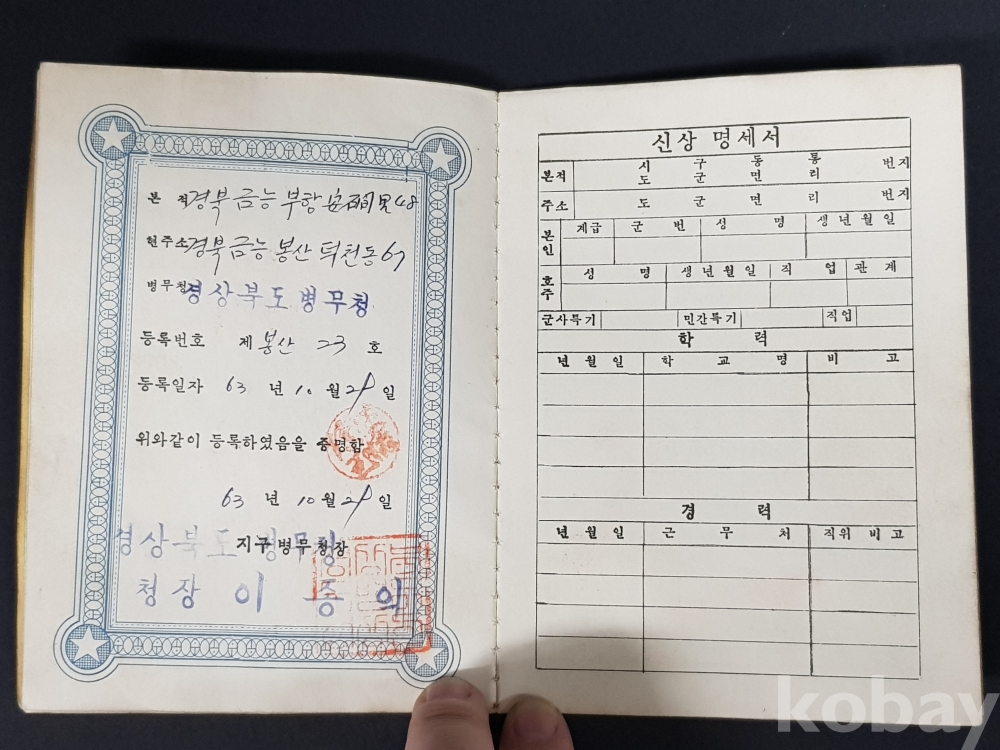 본 적 경북 금능 부항 安間里 48
현주소 경북 금능 봉산 덕천동 67
병무청 경상북도병무청
등록번호 제 봉산 23 호
등록일자 63 년 10 월 21 일
위와같이 등록하였음을 증명함
63 년 10 월 21 일
경상북도 병무청
지구병무청장
청장 이
신상 명세서
본적 시 구 동 통 번지
도 군 면 리
주소 도 군 면 리 번지
본인 계급 군 번 성 명 생년월일
호주 성 명 생년월일 직 업 관 계
군사특기 민간특기 직업
학 력
년 월 일 학 교 명 비 고
경 력
년 월 일 근 무 처 직위 비 고
kobay